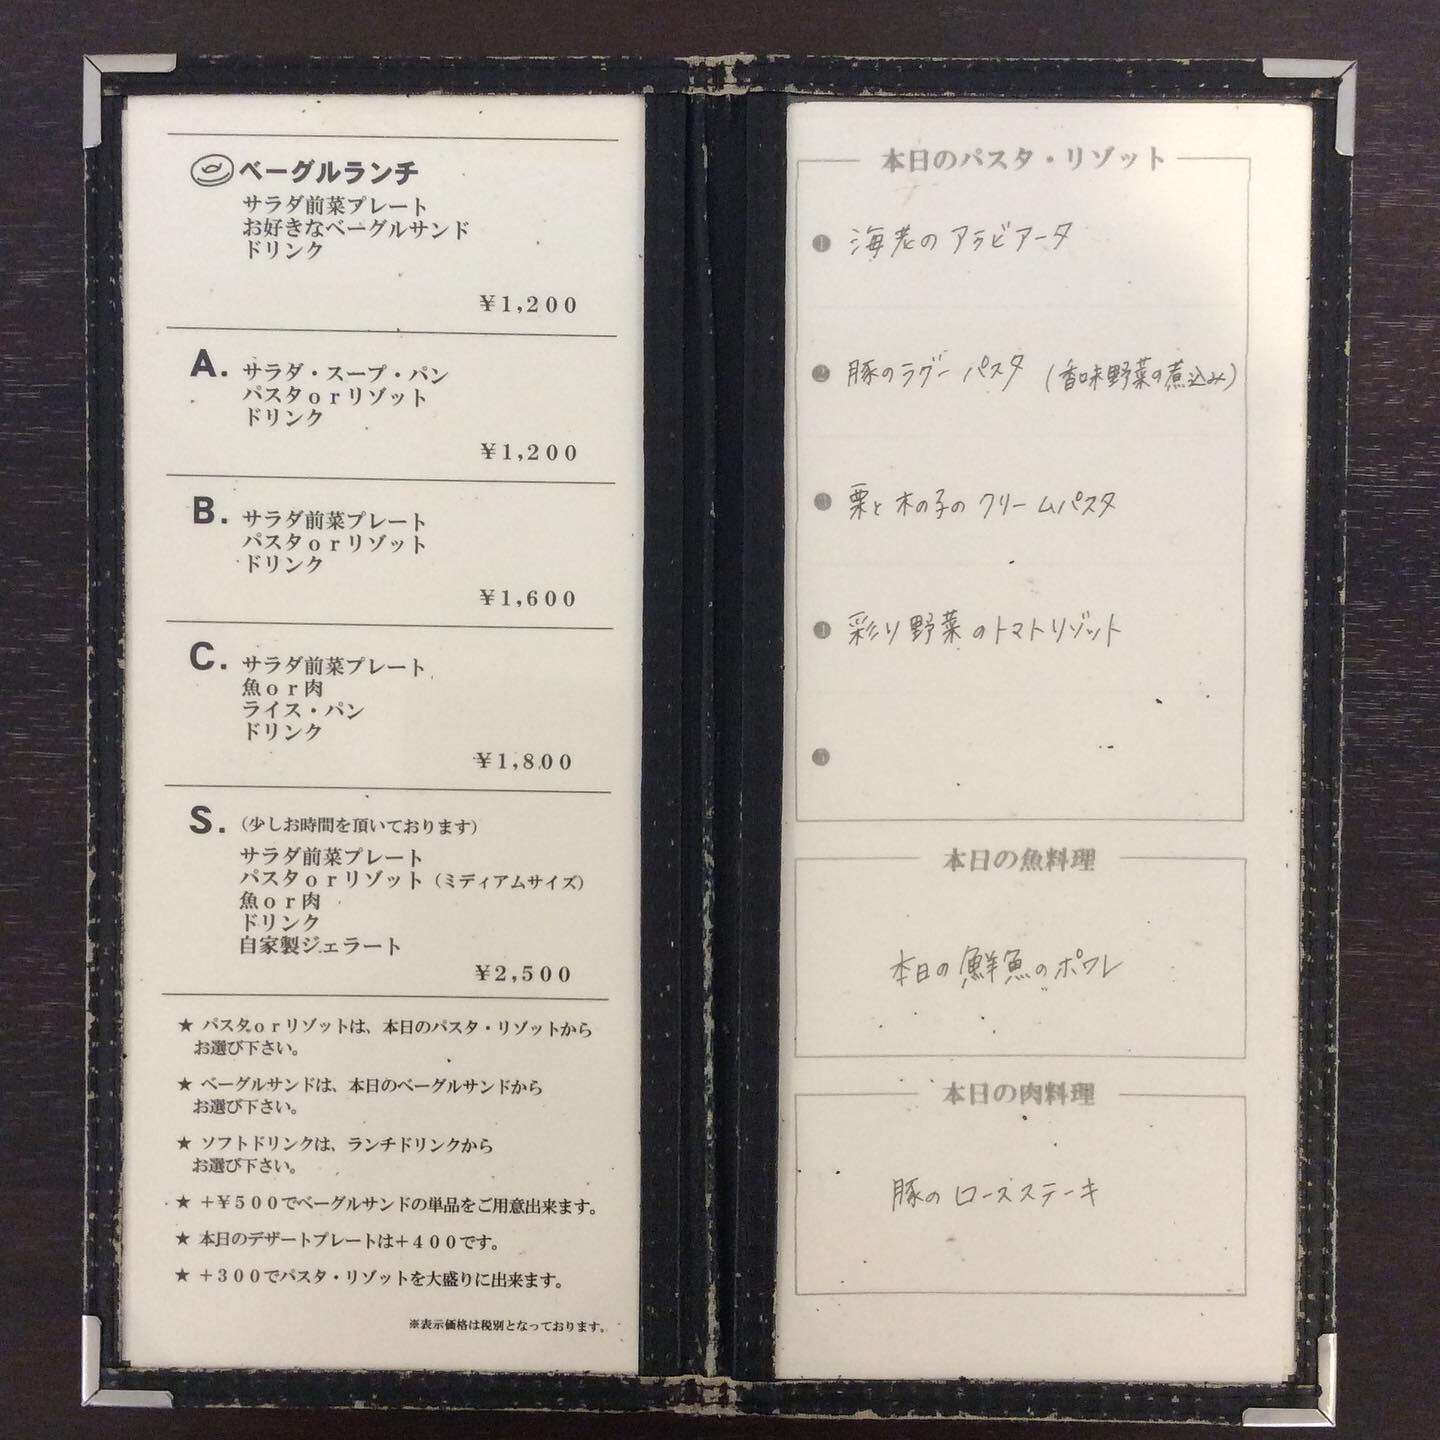 ベーグルランチ
サラダ前菜プレート
お好きなベーグルサンド
ドリンク
¥1,200
A. サラダ・スープ・パン
パスタorリゾット
ドリンク
¥1,200
B. サラダ前菜プレート
パスタorリゾット
ドリンク
¥1,600
C. サラダ前菜プレート
魚or肉
ライス・パン
ドリンク
¥1,800
S.（少しお時間を頂いております）
サラダ前菜プレート
パスタorリゾット（ミディアムサイズ）
魚or肉
ドリンク
自家製ジェラート
¥2,500
★ パスタorリゾットは、本日のパスタ・リゾットから
お選び下さい。
★ ベーグルサンドは、本日のベーグルサンドから
お選び下さい。
★ ソフトドリンクは、ランチドリンクから
お選び下さい。
★ +¥500でベーグルサンドの単品をご用意出来ます。
★ 本日のデザートプレートは+400です。
★ +300でパスタ・リゾットを大盛りに出来ます。
※表示価格は税別となっております。
本日のパスタ・リゾット
❶ 海老のアラビアータ
❷ 豚のラグーパスタ（香味野菜の煮込み）
❸ 栗と木の子のクリームパスタ
❹ 彩り野菜のトマトリゾット
❺
本日の魚料理
本日の鮮魚のポワレ
本日の肉料理
豚のロースステーキ